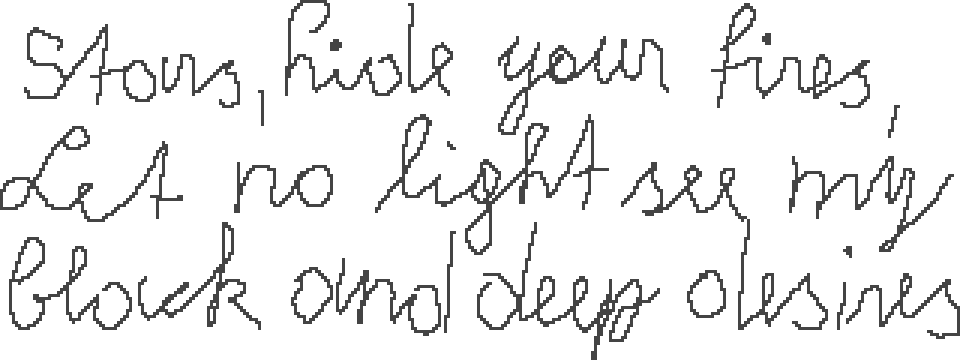 Stars, hide your fires,
Let no light see my
black and deep desires